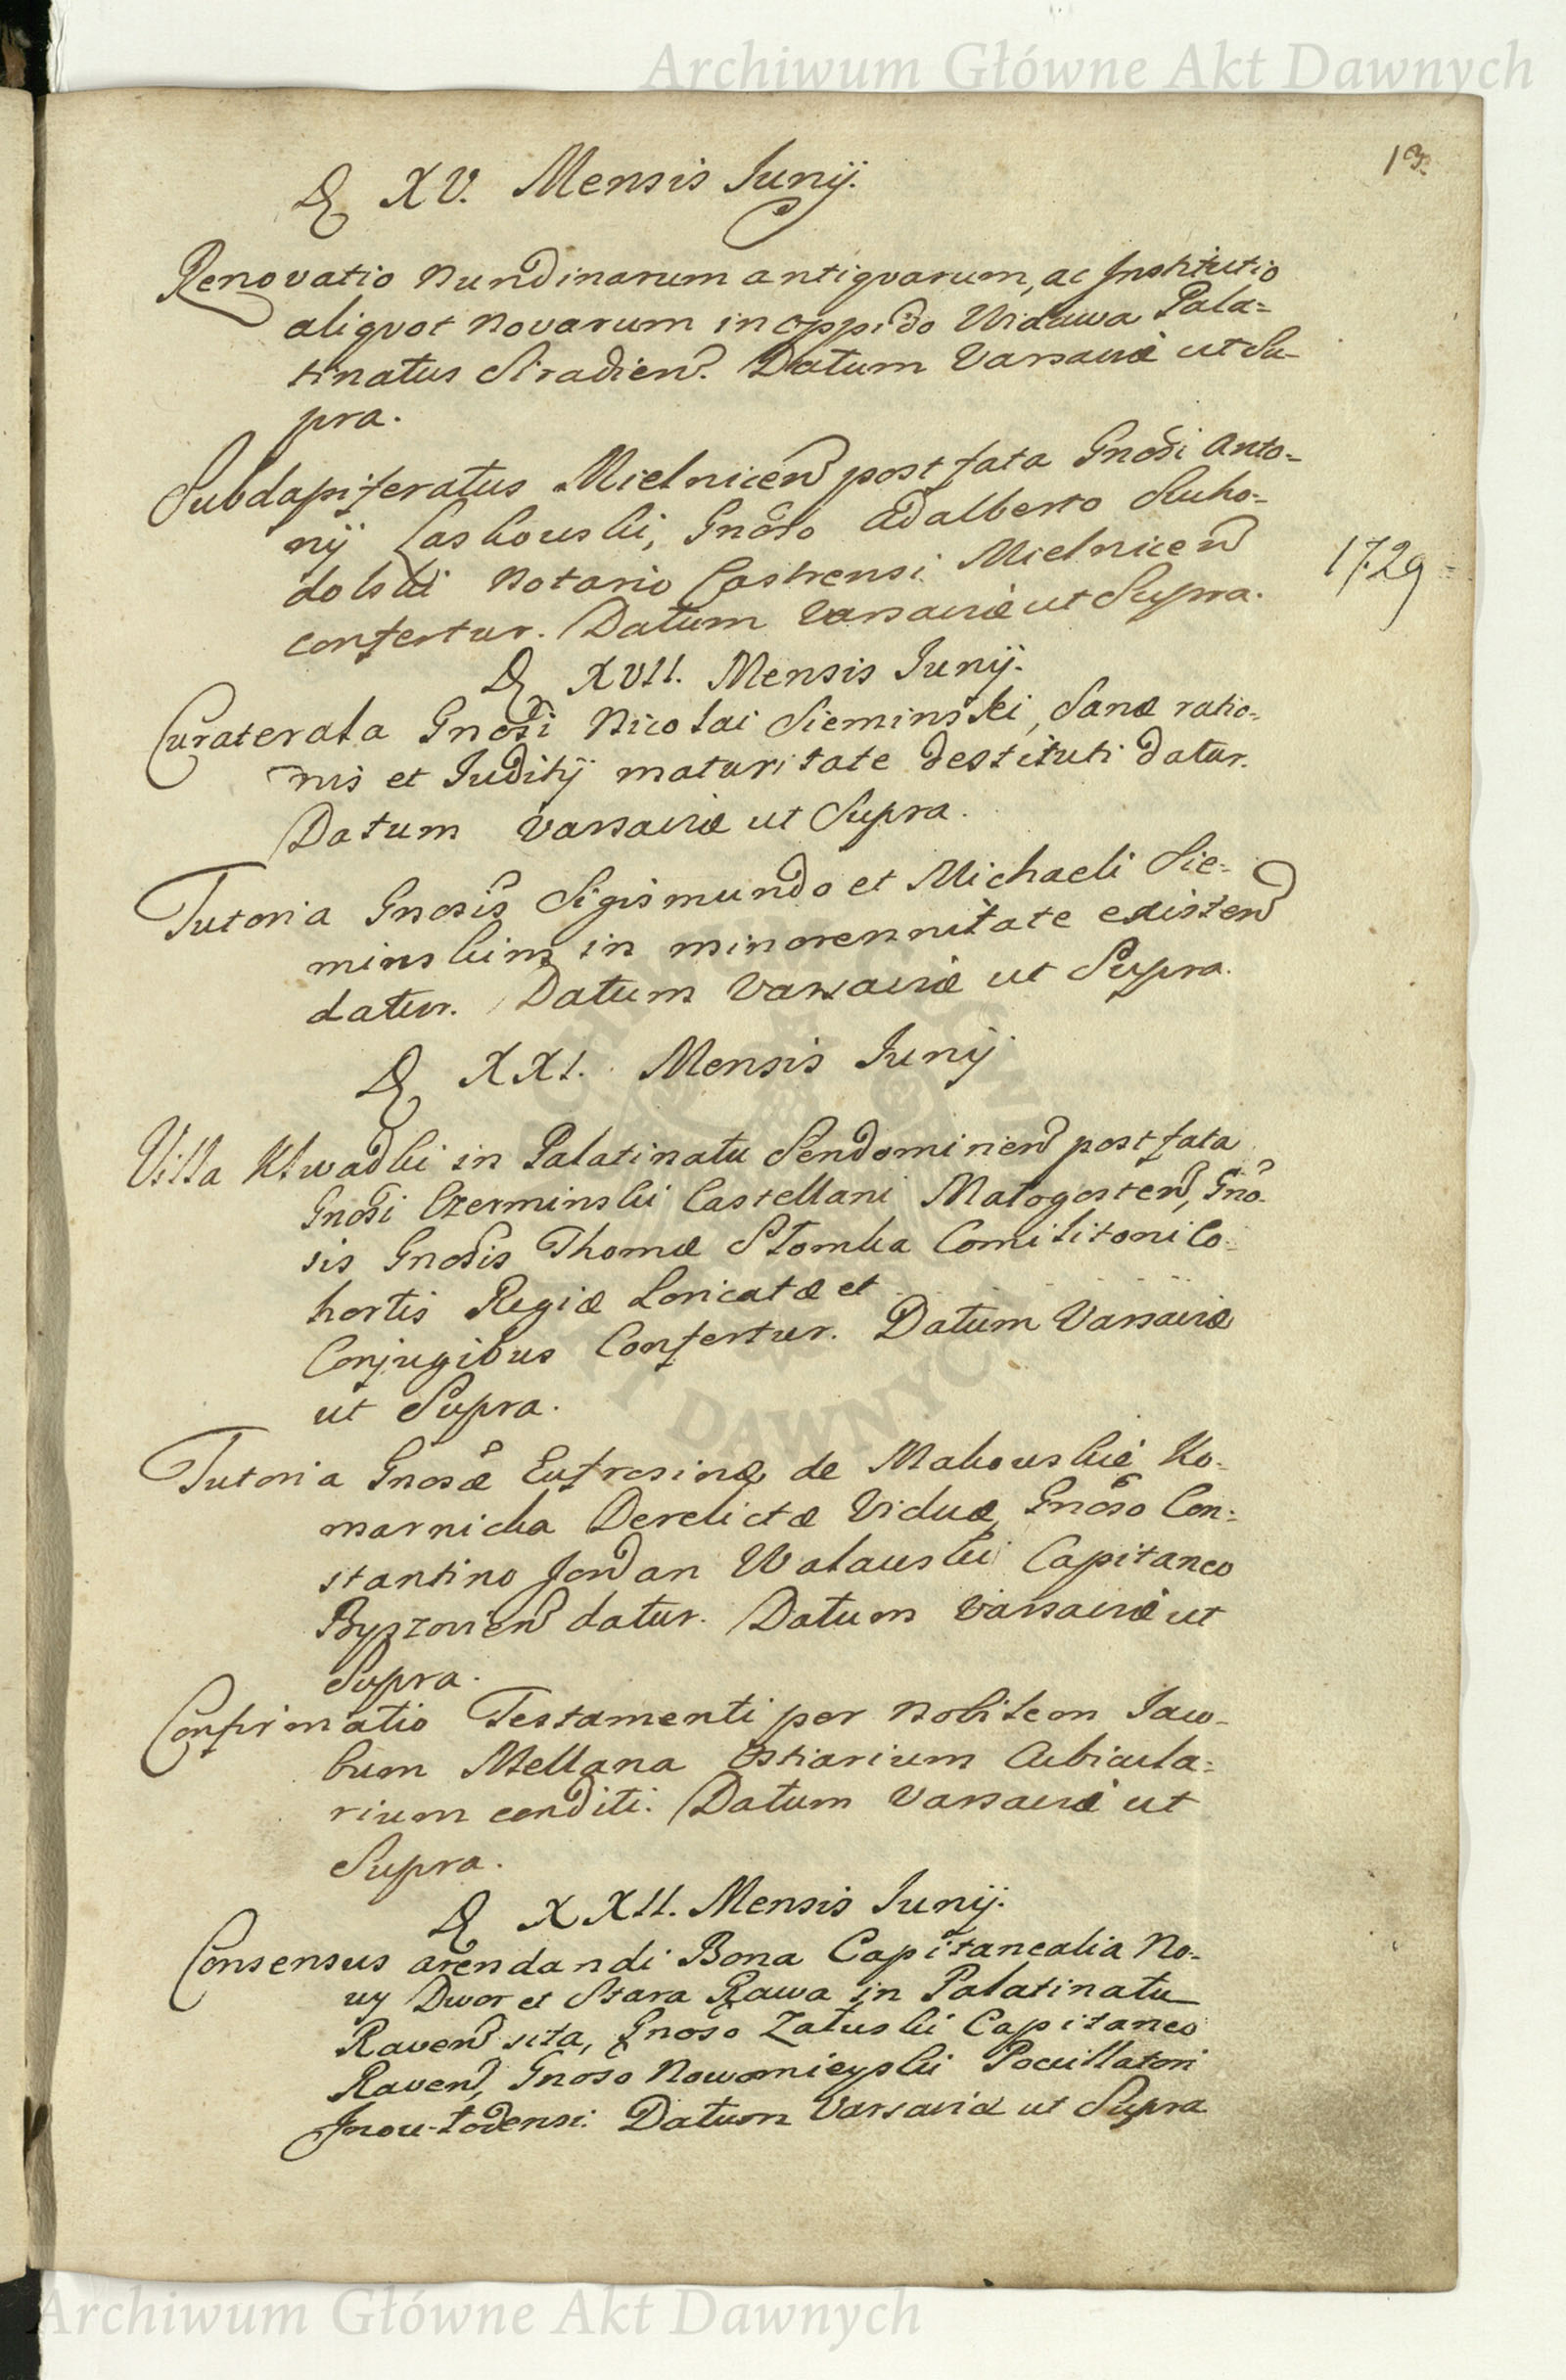 Archiwum Główne Akt Dawnych
13.
D XV. Mensis Junij.
Renovatio Nundinarum antiqvarum, ac Institutio
aliqvot novarum in oppido Widawa Pala=
tinatus Siradien. Datum Varsaviæ ut Su-
pra.
Subdapiferatus Mielnicen post fata Gnosi Anto=
nij Laskowski, Gnoso Adalberto Sucho=
dolski Notario Castrensi Mielnicen
confertur. Datum Varsaviæ ut Supra.
1729
D XVII. Mensis Junij.
Curaterala Gnosi Nicolai Sieminski, Sanæ ratio=
nis et Juditij maturitate destituti datur.
Datum Varsaviæ ut Supra.
Tutoria Gnosis Sigismundo et Michaeli Sie=
minskim in minorennitate existen
datur. Datum Varsaviæ ut Supra.
D XXI. Mensis Junij
Villa Klwadki in Palatinatu Sendomirien post fata
Gnosi Czerminski Castellani Malogosten, Gno=
sis Gnosis Thomæ Slomka Comilitoni Co=
hortis Regiæ Loricatæ et . . . . . .
Conjugibus Confertur. Datum Varsaviæ
ut Supra.
Tutoria Gnosæ Eufrosinæ de Makowskie Ko=
marnicka Derelictæ Viduæ, Gnoso Con=
stantino Jordan Walawski Capitaneo
Byszovien datur. Datum Varsaviæ ut
Supra.
Confirmatio Testamenti per Nobilem Jaco=
bum Mellana Ostiarium Cubicula=
rium conditi. Datum Varsaviæ ut
Supra.
D XXII. Mensis Junij.
Consensus arendandi Bona Capitanealia No=
wy Dwor et Stara Rawa in Palatinatu
Raven sita, Gnoso Zaluski Capitaneo
Raven, Gnoso Nowomieyski Pocillatori
Inow-lodensi. Datum Varsaviæ ut Supra
ARCHIWUM GŁÓWNE AKT DAWNYCH
Archiwum Główne Akt Dawnych